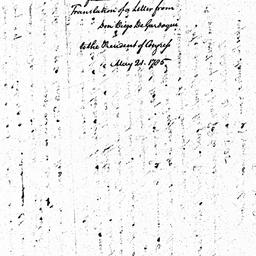 Translation of a Letter from
Don Diego De Gardoqui
to the President of Congress
May 21. 1785